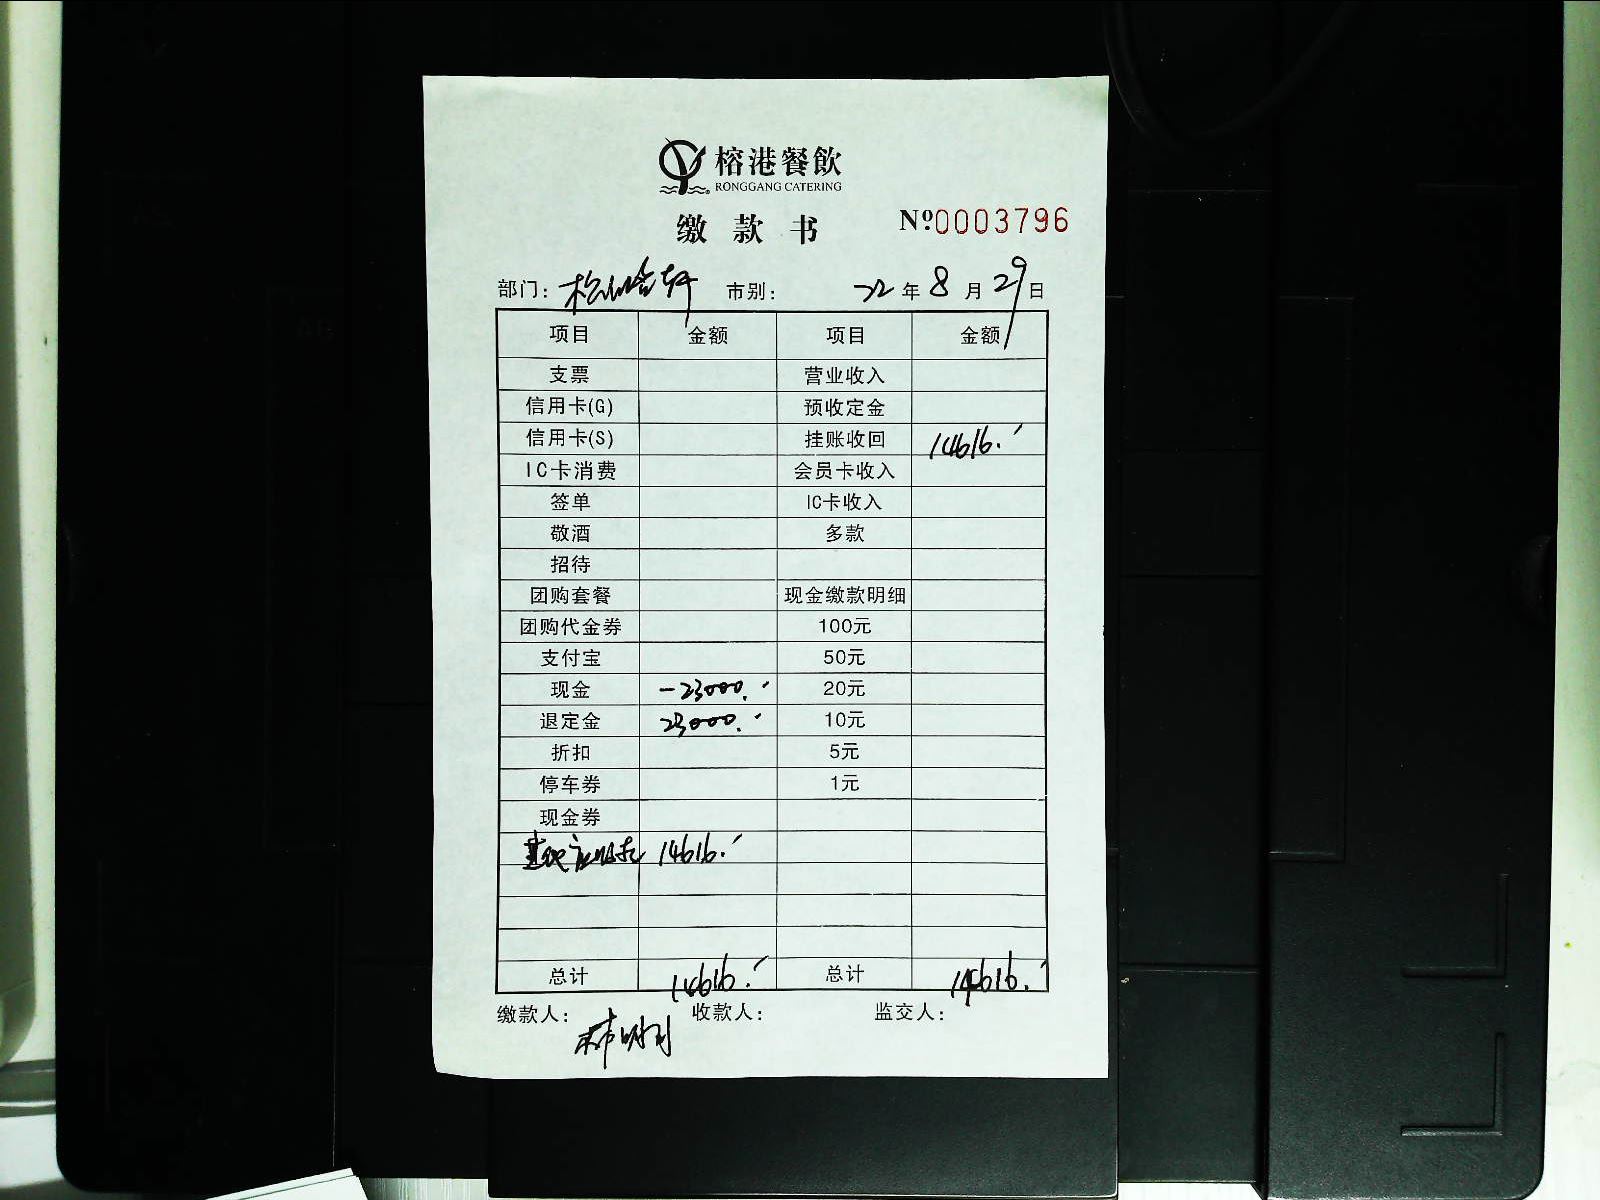 榕港餐飲
RONGGANG CATERING
缴款书
Nº:0003796
部门: 市别: 22年8月29日
项目 金额 项目 金额
支票 营业收入
信用卡(G) 预收定金
信用卡(S) 挂账收回 14616.
IC卡消费 会员卡收入
签单 IC卡收入
敬酒 多款
招待
团购套餐 现金缴款明细
团购代金券 100元
支付宝 50元
现金 -23000. 20元
退定金 23000. 10元
折扣 5元
停车券 1元
现金券
14616.
总计 14616. 总计 14616.
缴款人: 收款人: 监交人: